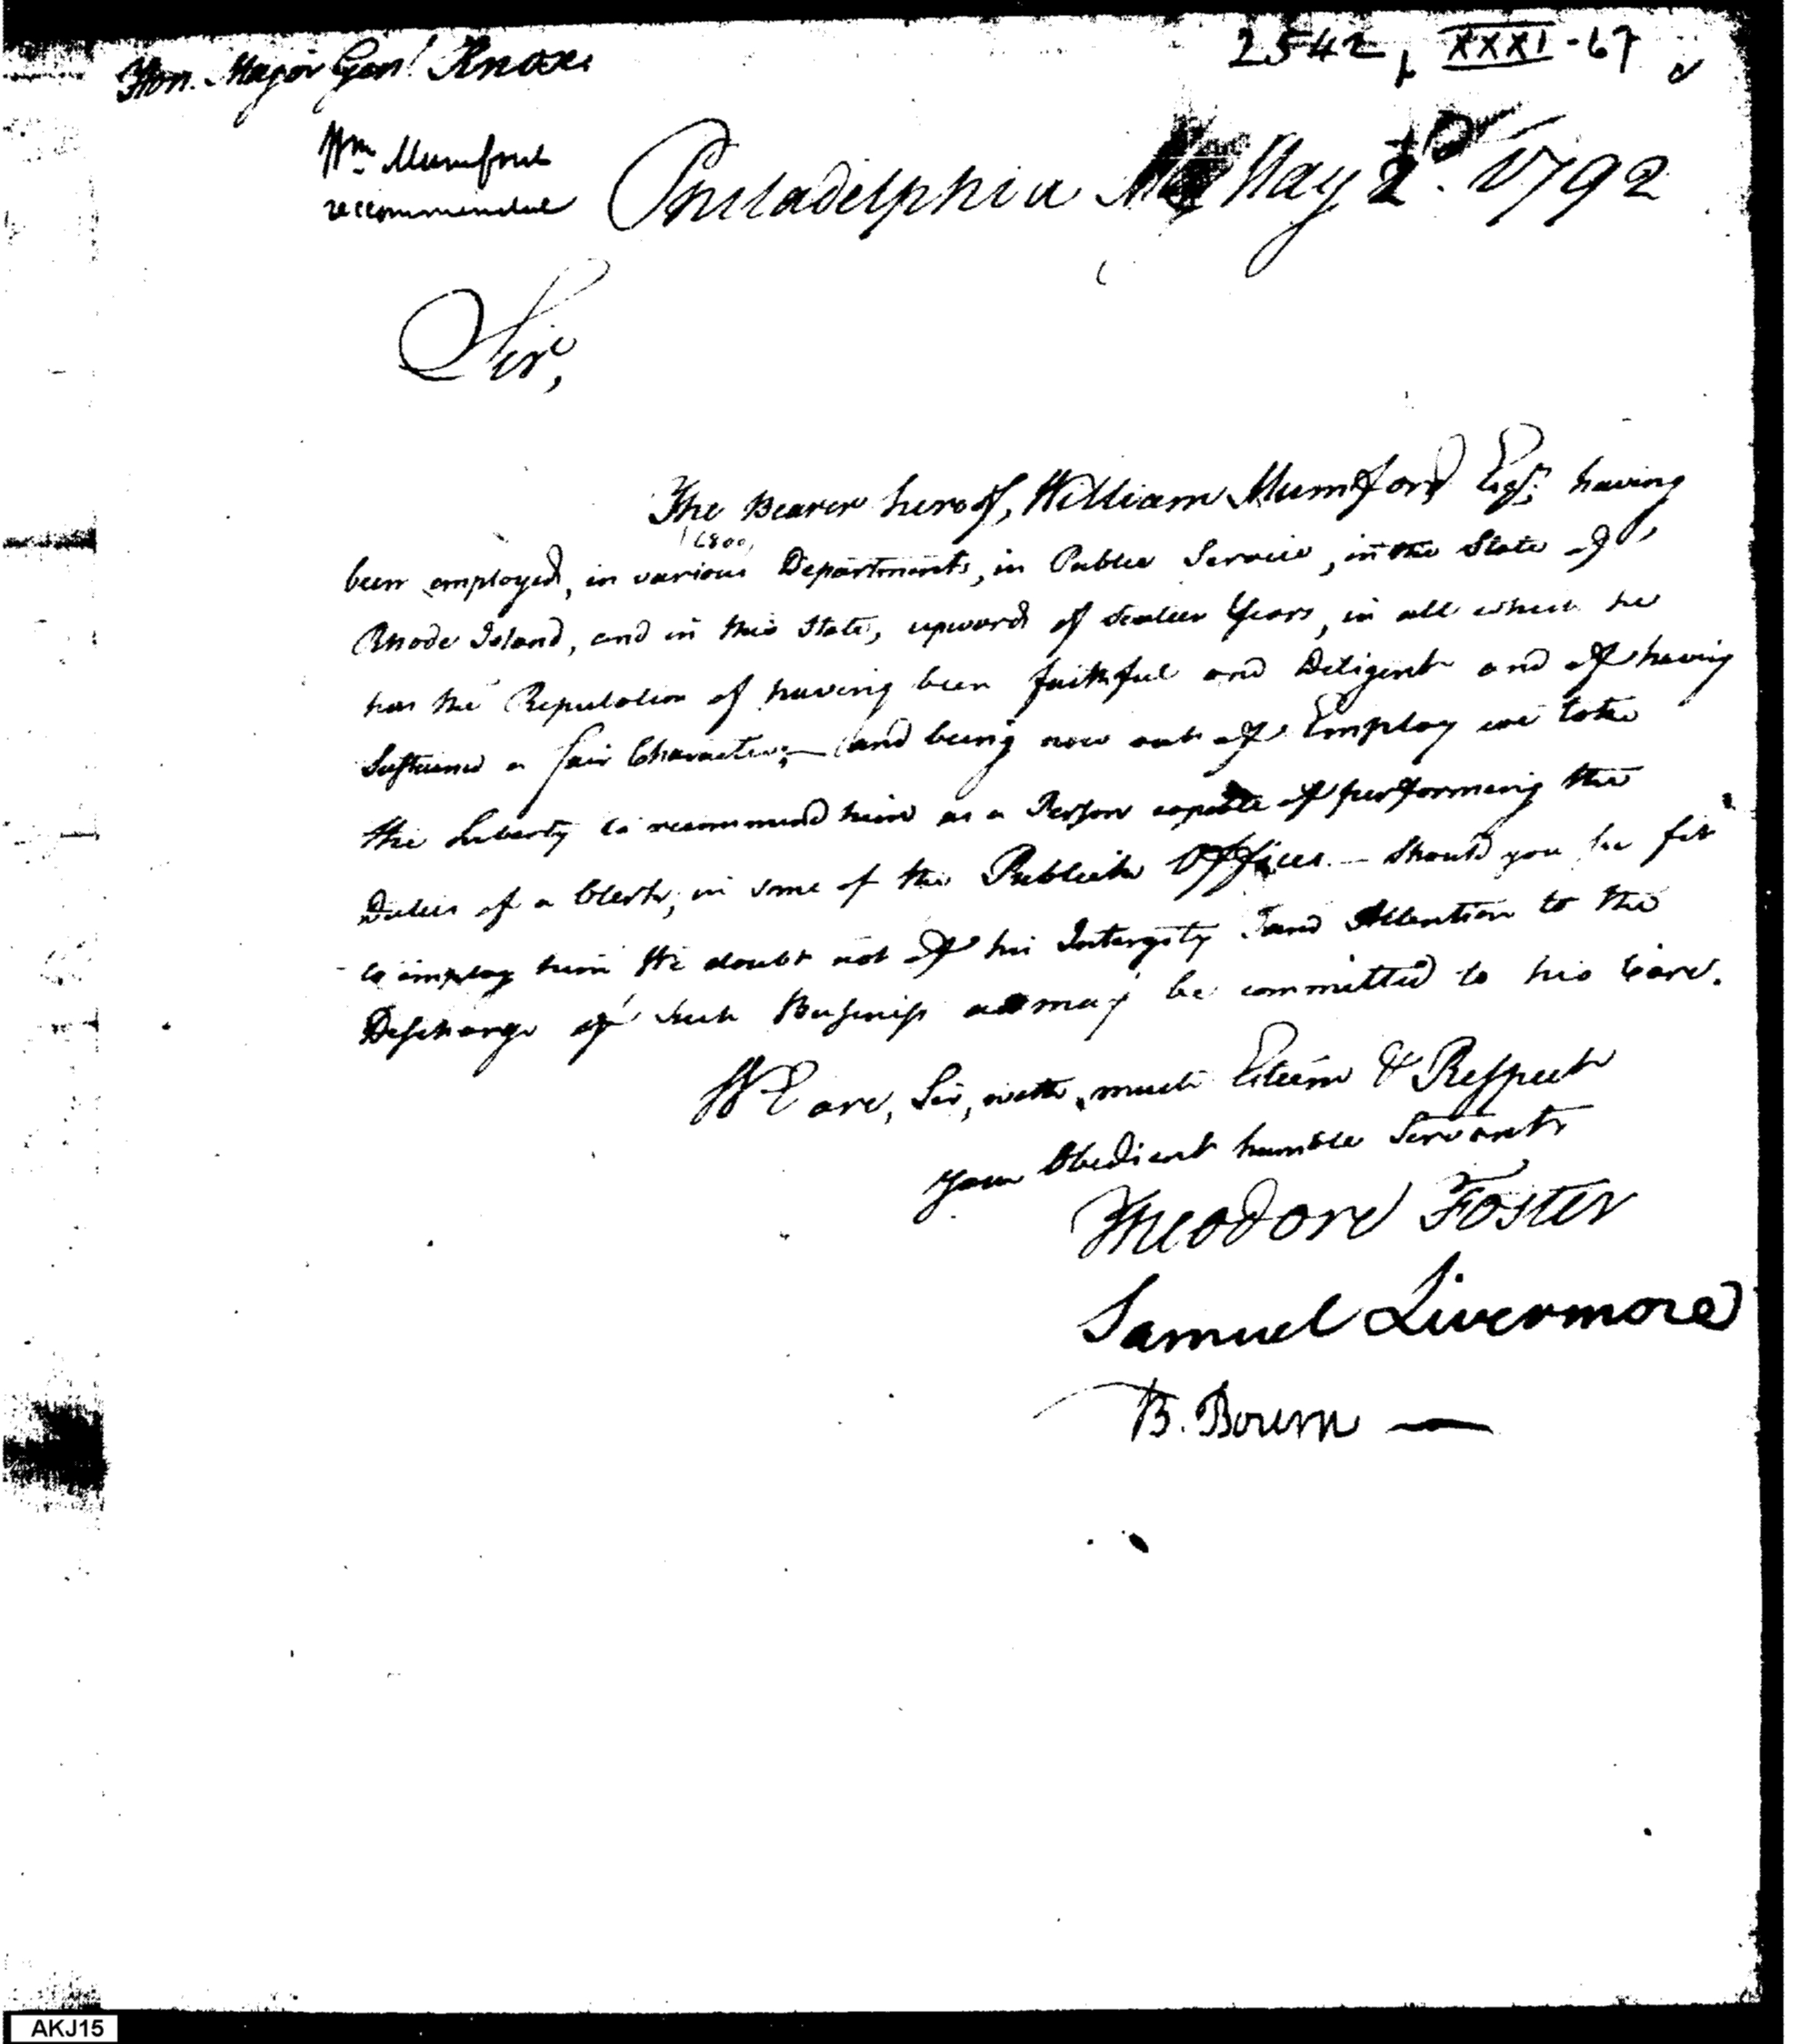 Hon. Major Gen! Knox.
2542, XXXI-67
Wm Mumford
recommended
Philadelphia May 2d. 1792
Sir,
The Bearer hereof, William Mumford Esqr. having
been employed, in various Departments, in Public Service, in the State of
Rhode Island, and in this State, upward of Years, in all which he
has the Reputation of having been faithful and Diligent and of having
Sustained a fair Character;— and being now out of Employ we take
the Liberty to recommend him as a Person capable of performing the
Duties of a Clerk, in some of the Publick Offices.— Should you see fit
to employ him We doubt not of his Intergity and Attention to the
Discharge of such Business as may be committed to his Care.
WE are, Sir, with much Esteem & Respect
your Obedient humble Servants
Theodore Foster
Samuel Livermore
B. Bourn —
AKJ15